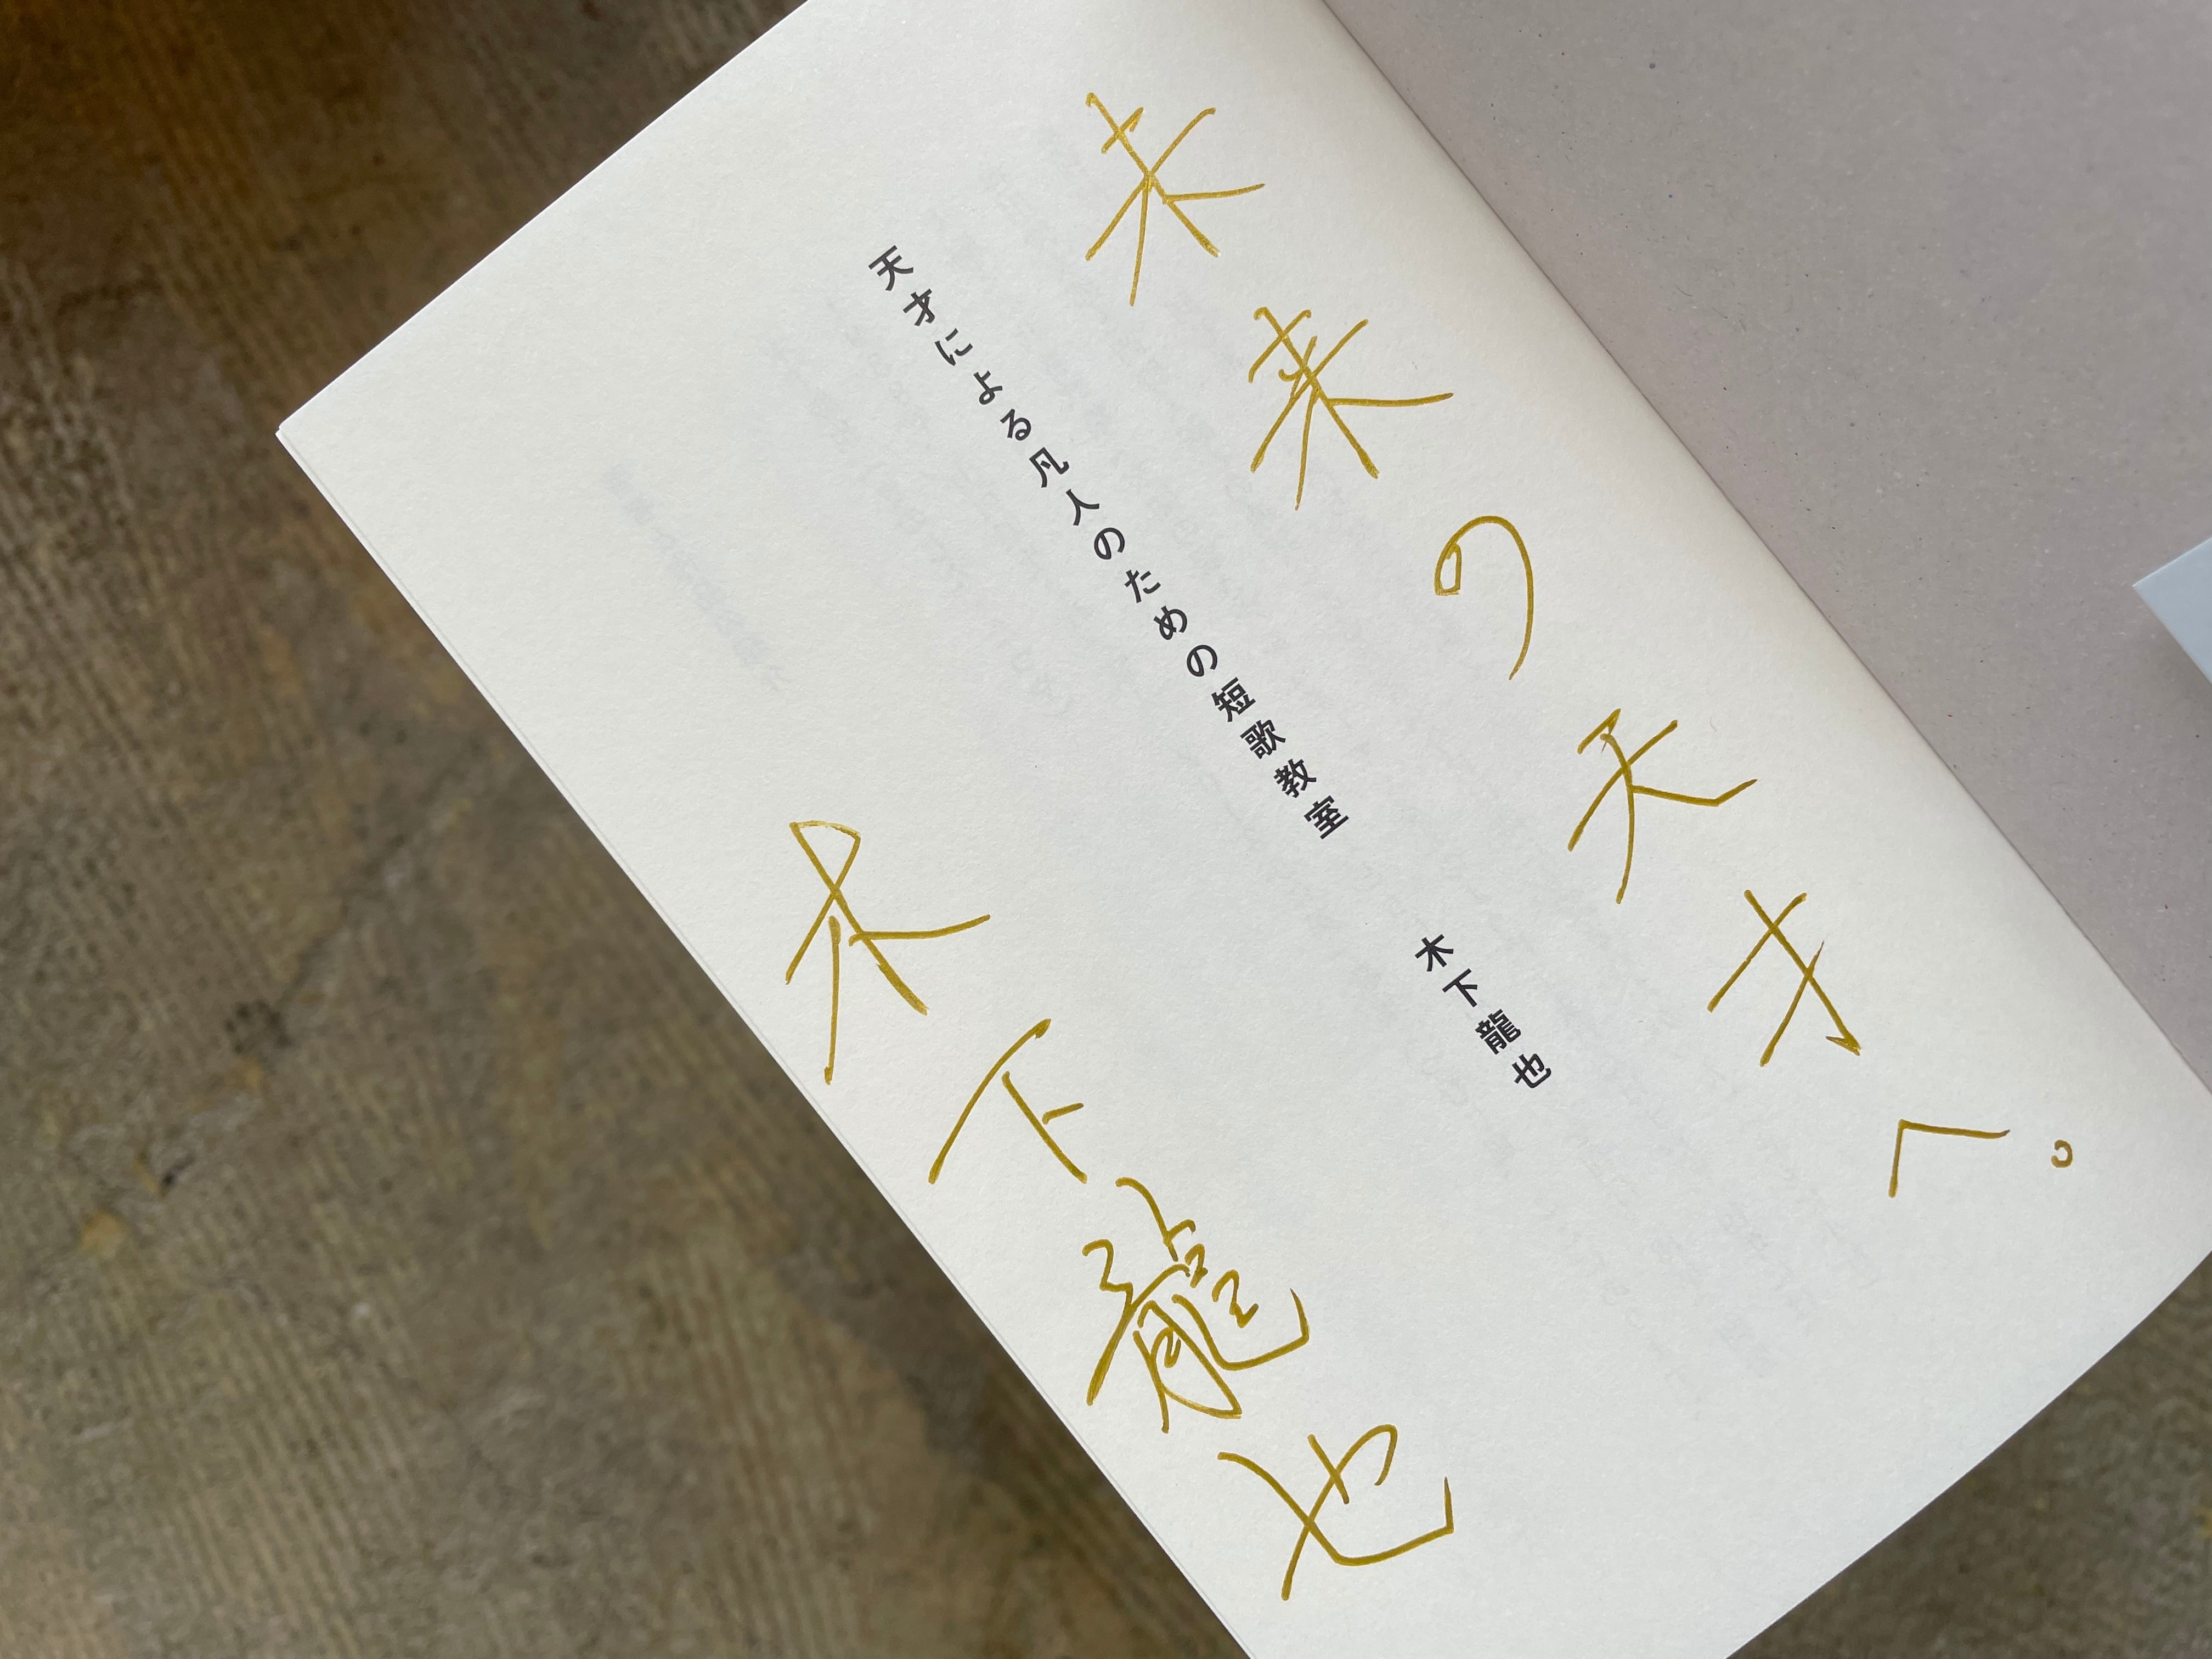 未来の天才へ。
天才による凡人のための短歌教室
木下龍也
木下龍也